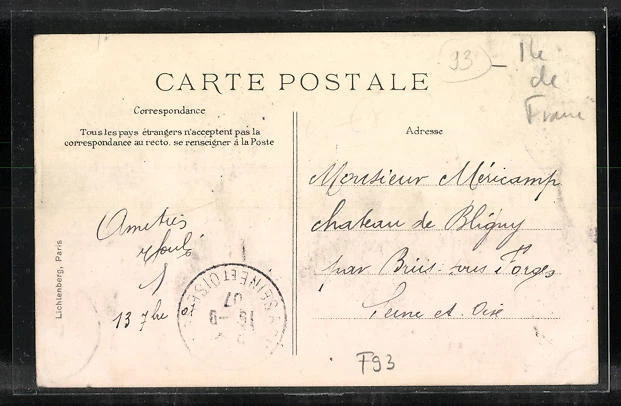 93 — Ile
de
France
CARTE POSTALE
Correspondance
Tous les pays étrangers n'acceptent pas la
correspondance au recto. se renseigner à la Poste
Adresse
Monsieur Méricamp
chateau de Bligny
par Briis-sous Forges
Seine et Oise
Amitiés
13 7bre
SEINE ET OISE
07
Lichtenberg, Paris
F93